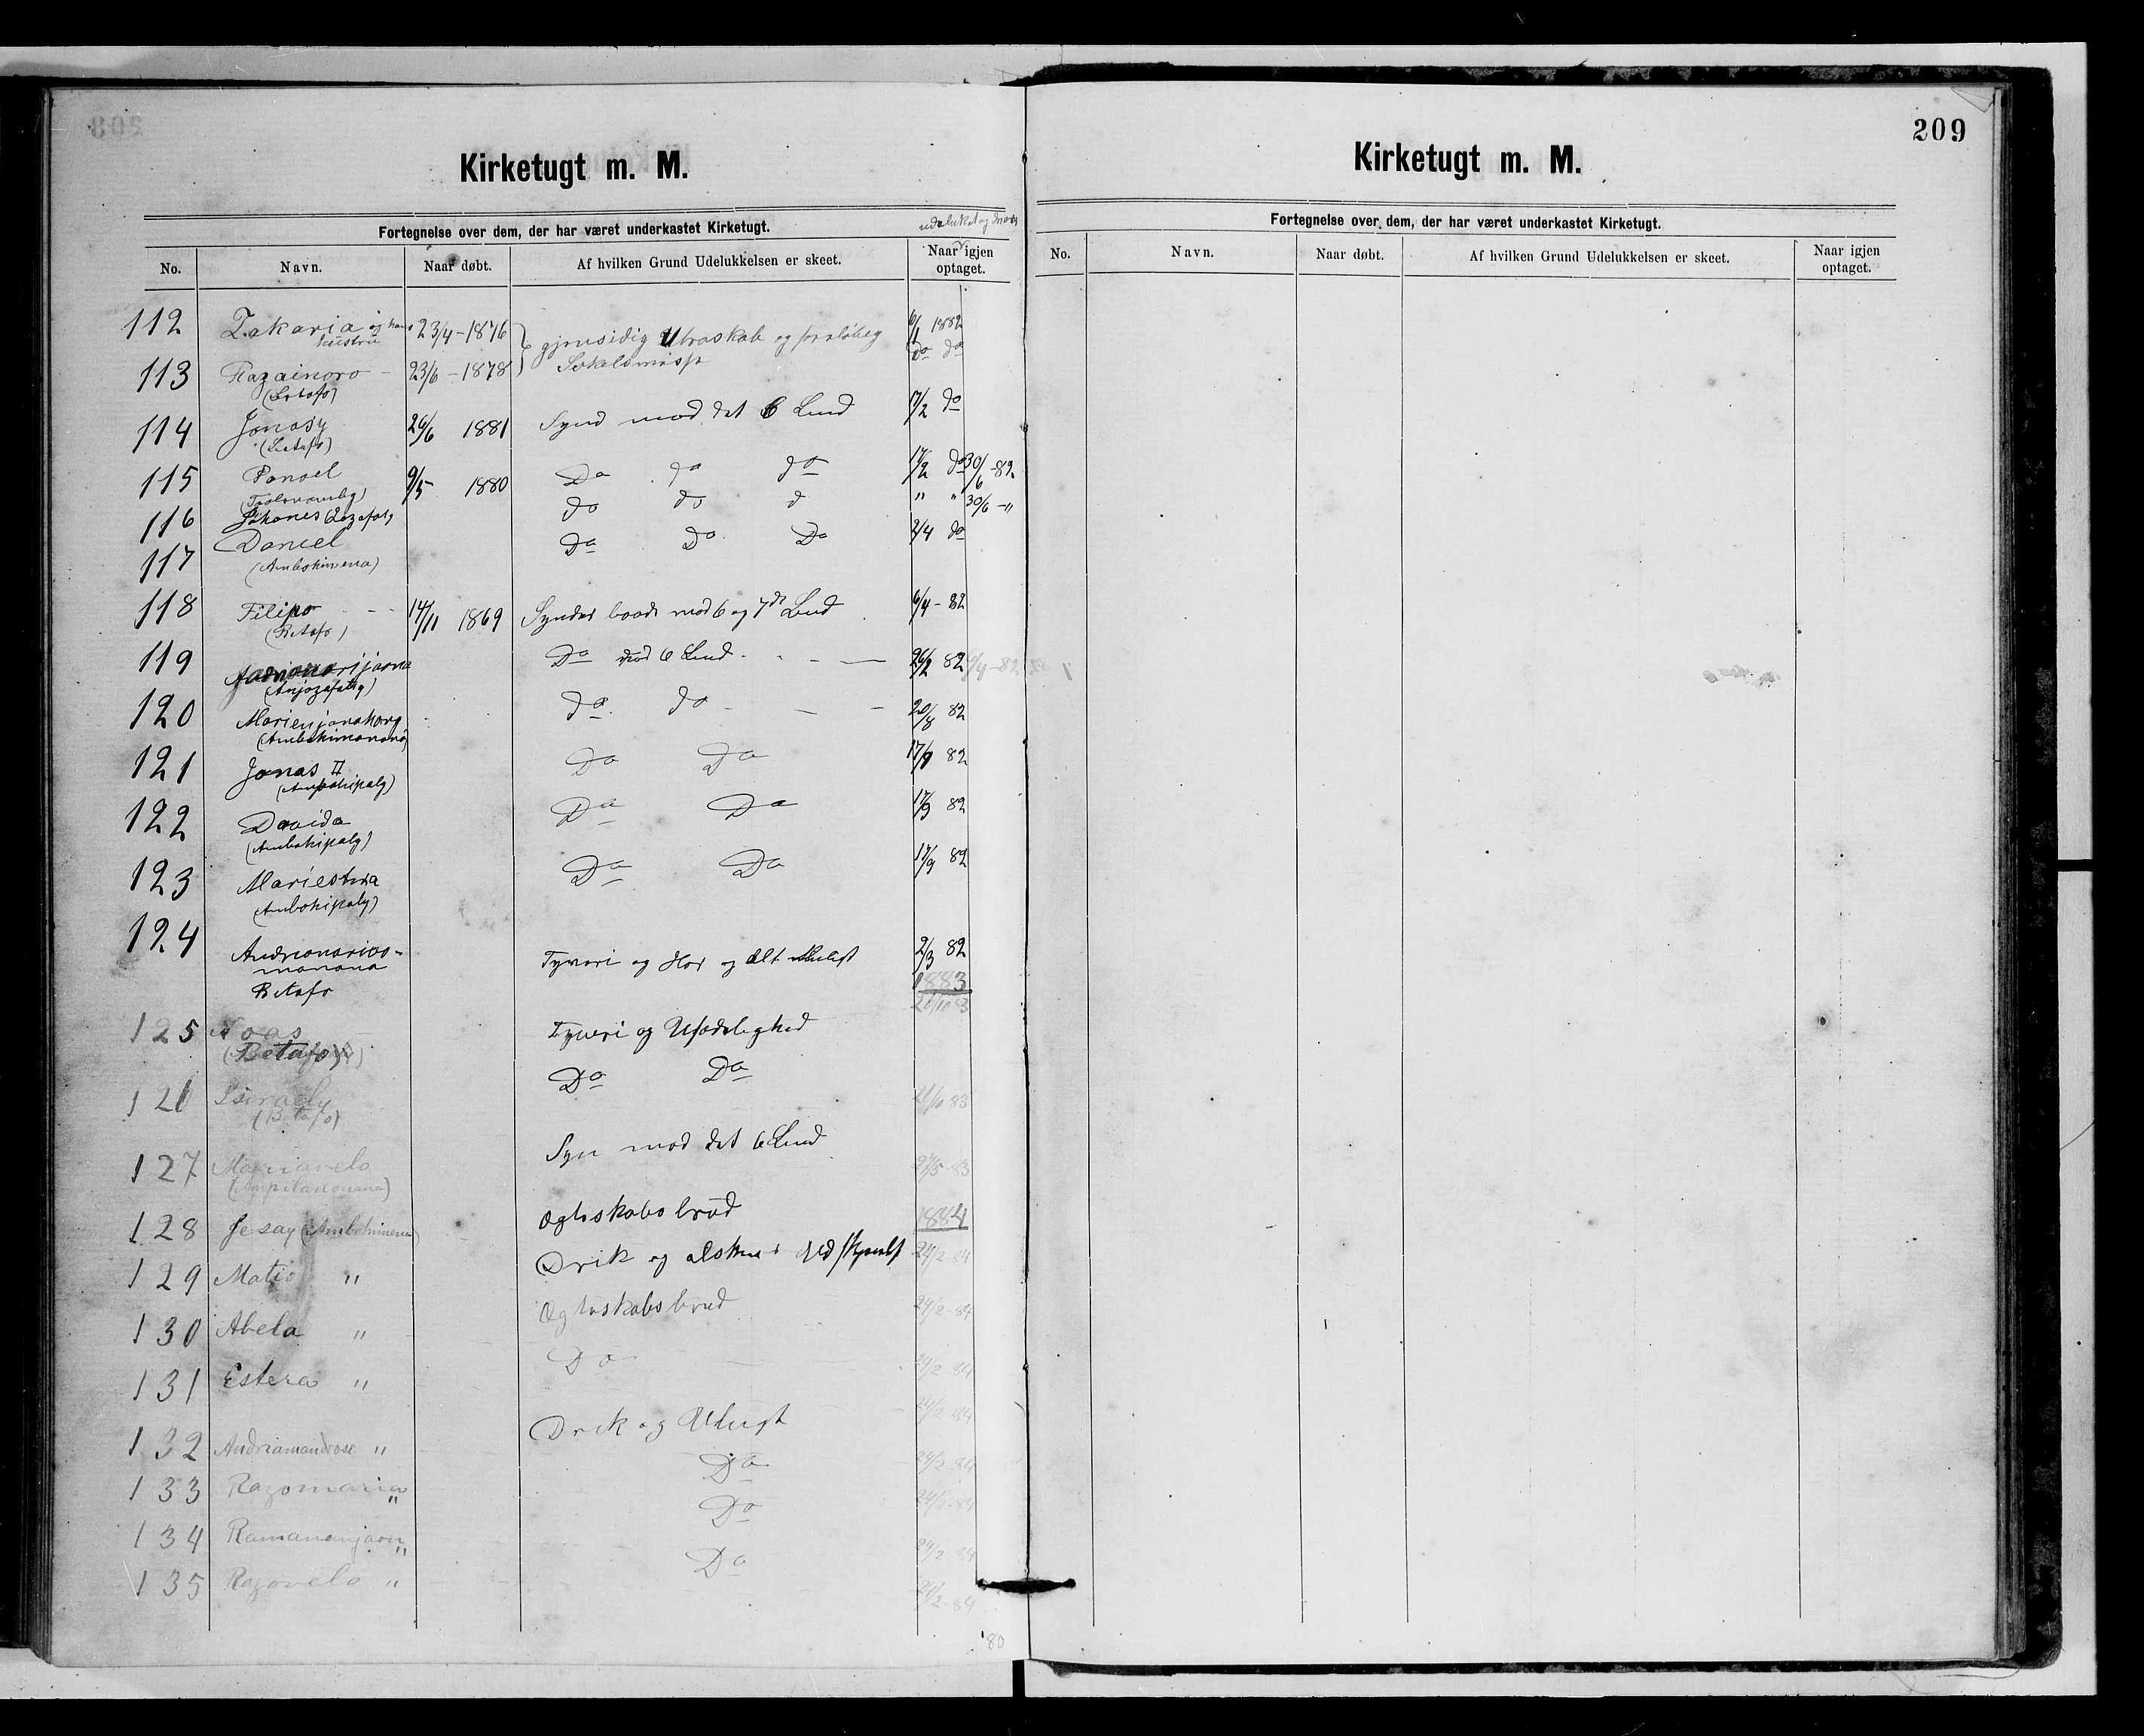 Kirketugt m. M.
Fortegnelse over dem, der har været underkastet Kirketugt.
udelukket og
No. Navn. Naar døbt. Af hvilken Grund Udelukkelsen er skeet. Naar igjen optaget.
112 Zakaria og hans hustru 23/4 - 1876 gjensidig Utroskab og foreløbig 6/1 1882
113 Razainoro - 23/6 - 1878 Do do
(Betafo)
114 Jonasy 26/6 1881 Synd mod det 6 Bud 17/2 do
(Betafo)
115 9/5 1880 Do do do 17/2 do 30/6 - 82.
116 Johanes do do d " " 30/6 - "
117 Daniel Do Do Do 2/4 do
(Ambohimena)
118 Filipo - - 14/11 1869 Synder baade mod 6 og 7de Bud 6/4 - 82
(Betafo)
119 Do mod 6 Bud - - - 26/2 82
120 do do - - - 20/8 82
(Ambohimanana)
121 Jonas II Do Do 17/9 82
(Ambohipaly)
122 Davida Do Do 17/9 82
(Ambohipaly)
123 Mariestera Do Do 17/9 82
(Ambohipaly)
124 Andrianarivo- Tyveri og Hor og alt muligt 2/3 82
manana
Betafo
1883
125 Noas Tyveri og Usædelighed 21/10 83
(Betafo)
126 Israely Do Do 21/10 83
(Betafo)
127 Mariavelo Syn mod det 6 Bud /5 83
128 Jesay (Ambohimena) Ægteskabsbrud
1884
129 Matio " Drik og 24/2 84
130 Abela " Ægteskabsbrud 24/2 - 84
131 Estera " Do 24/2 - 84
132 Andriamandroso " Drik og Utugt 24/2 84
133 Razomaria " Do 24/2 - 84
134 Ramananjaon " Do 24/2 - 84
135 Razovelo " Do 24/2 - 84
'80
209
Kirketugt m. M.
Fortegnelse over dem, der har været underkastet Kirketugt.
No. Navn. Naar døbt. Af hvilken Grund Udelukkelsen er skeet. Naar igjen optaget.